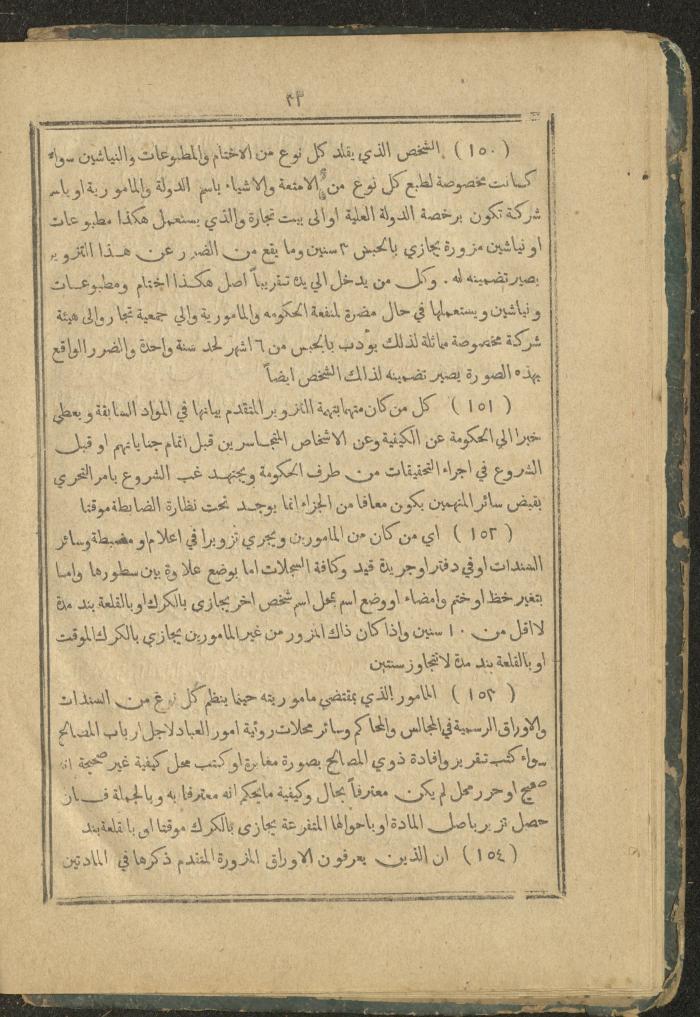 ٣٣
( ١٥٠ ) الشخص الذي يقلد كل نوع من الاختام والمطبوعات والنياشين سواء
كسانت مخصوصة لطبع كل نوع من الامتعة والاشياء باسم الدولة والمامورية او باسم
شركة تكون برخصة الدولة العلية او الى بيت تجارة والذي يستعمل هكذا مطبوعات
او نياشين مزورة يجازي بالحبس ٣ سنين وما يقع من الضرر عن هذا التزوير
يصير تضمينه له . وكل من يدخل الي يده تقريباً اصل هكذا اختام ومطبوعات
ونياشين ويستعملها في حال مضرة لمنفعة الحكومه والمامورية والي جمعية تجار والى هيئة
شركة مخصوصة مماثلة لذلك يوٌدب بالحبس من ٦ اشهر لحد سنة واحدة والضرر الواقع
بهذه الصورة يصير تضمينه لذالك الشخص ايضاً
( ١٥١ ) كل من كان متهما بتهمة التزوير المتقدم بيانها في المواد السابقة ويعطي
خبرا الي الحكومة عن الكيفية وعن الاشخاص المتجاسرين قبل اتمام جناياتهم او قبل
الشروع في اجراء التحقيقات من طرف الحكومة ويجتهد غب الشروع بامر التحري
بقبض سائر المتهمين يكون معافا من الجزاء انما يوجد تحت نظارة الضابطة موقتا
( ١٥٢ ) اي من كان من المامورين ويجري تزويرا في اعلام او مضبطة وسائر
السندات او في دفتر او جريدة قيد وكافة السجلات اما بوضع علاوة بين سطورها واما
بتغير خط او ختم وامضاء او وضع اسم بمحل اسم شخص اخر يجازي بالكرك او بالقلعة بند مدة
لا اقل من ١٠ سنين واذا كان ذاك المزور من غير المامورين يجازي بالكرك الموقت
او بالقلعة بند مدة لا تتجاوز سنتين
( ١٥٣ ) المامور الذي بمقتضي ماموريته حينما ينظم كل نوع من السندات
والاوراق الرسمية في المجالس والمحاكم وسائر محلات روٌية امور العباد لاجل ارباب المصالح
سواء كتب تقرير وافادة ذوي المصالح بصورة مغايرة او كتب محل كيفية غير صحيحة انه
صحيح او حرر محل لم يكن معترفاً بحال وكيفية ما يحكم انه معترفا به وبالجملة فان
حصل تزوير باصل المادة او باحوالها المتفرعة يجازي بالكرك موقتا او بالقلعة بند
( ١٥٤ ) ان الذين يعرفون الاوراق المزورة المتقدم ذكرها في المادتين